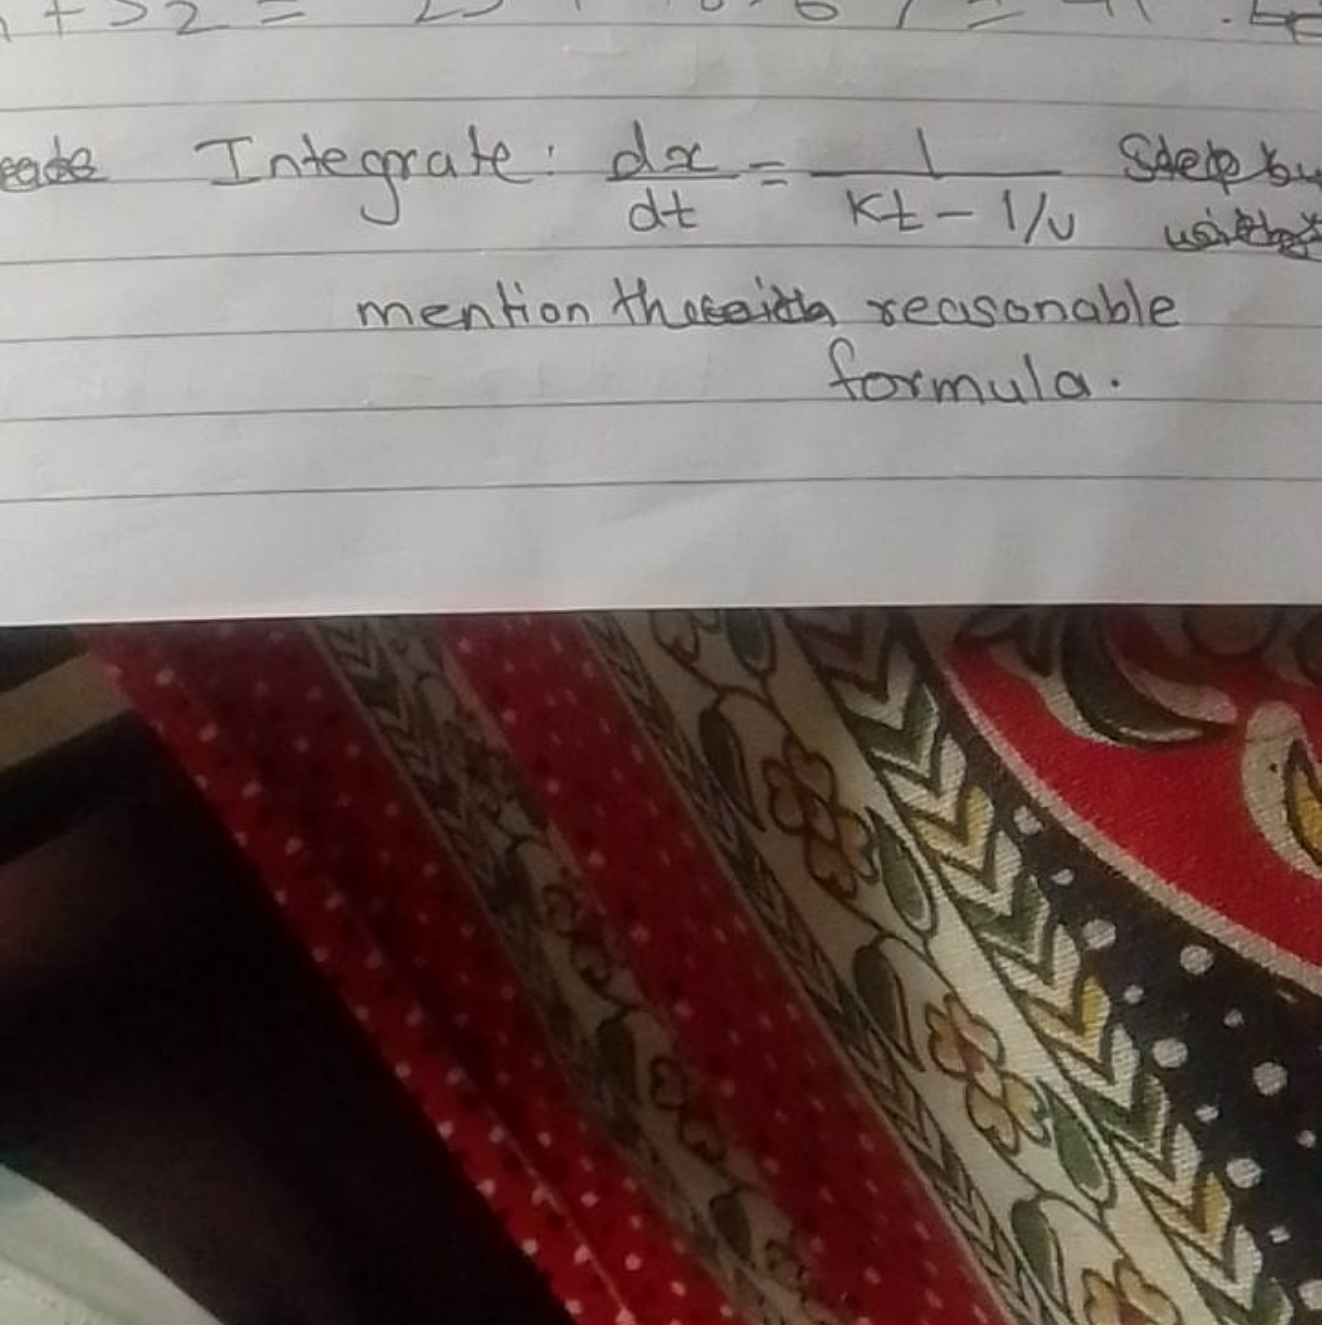 Integrate: dx/dt = 1/(Kt - 1/v) Step by
mention the reasonable
formula.